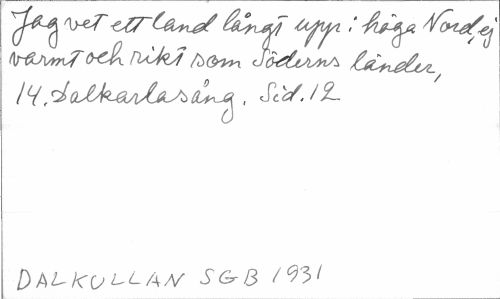 Jag vet ett land långt upp i höga Nord, ej
varmt och rikt som Söderns länder,
14. Dalkarlasång. Sid. 12
DALKULLAN SGB 1931